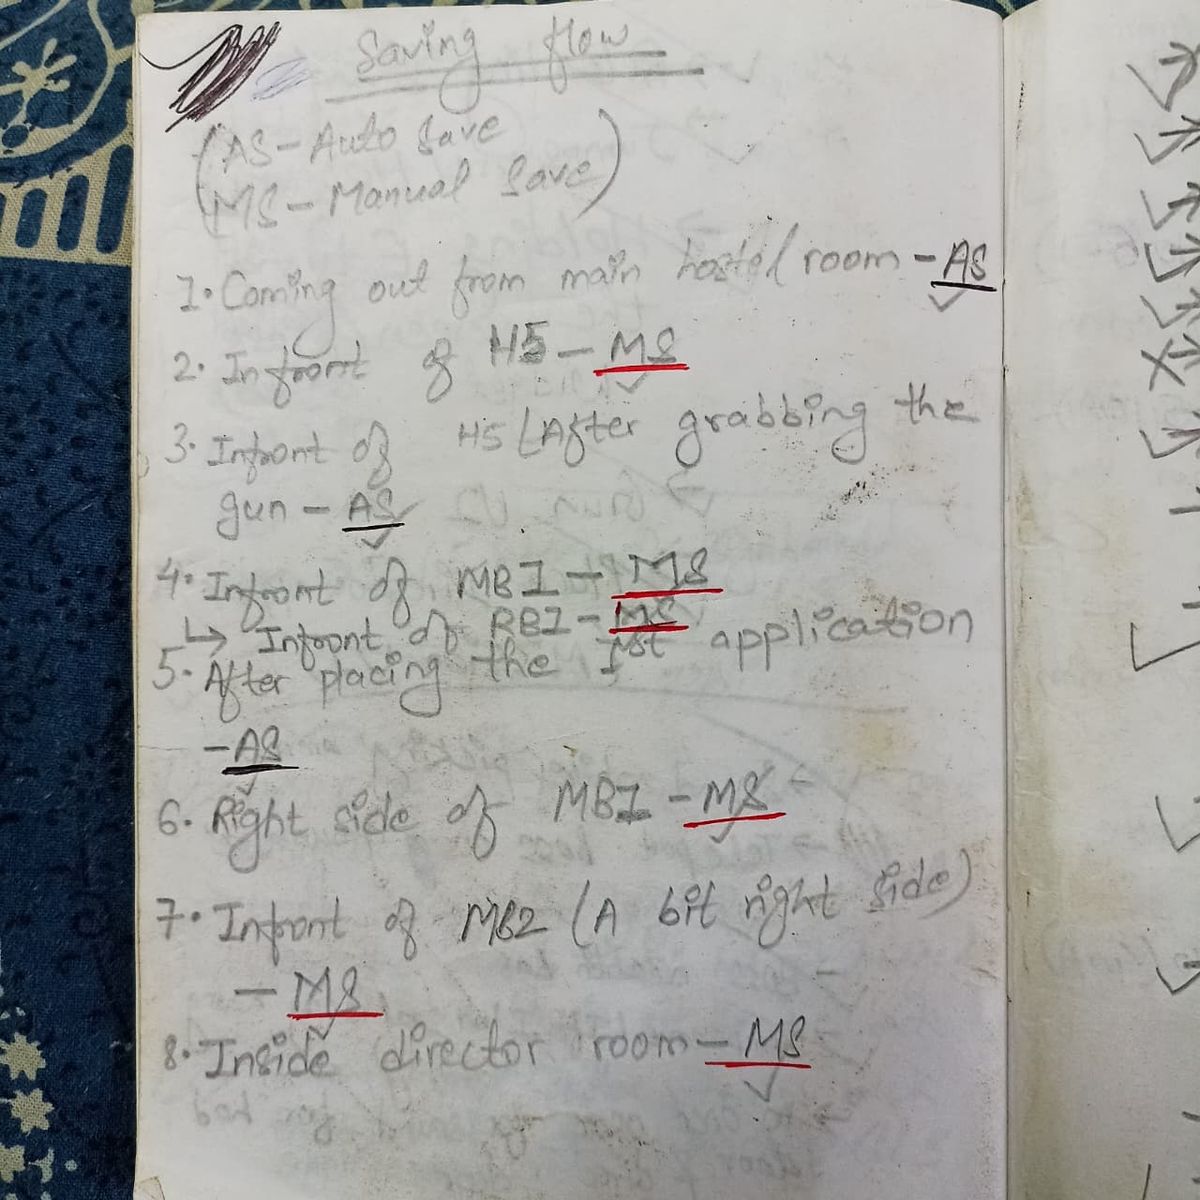 Saving flow
(AS - Auto Save
MS - Manual Save)
1. Coming out from main hostel room - AS
2. Infront of H5 - MS
3. Infront of H5 (After grabbing the
gun - AS
4. Infront of MB1 - MS
↳ Infront of BB1 - MS
5. After placing the 1st application
- AS
6. Right side of MB1 - MS
7. Infront of MB2 (A bit right side)
- MS
8. Inside director room - MS